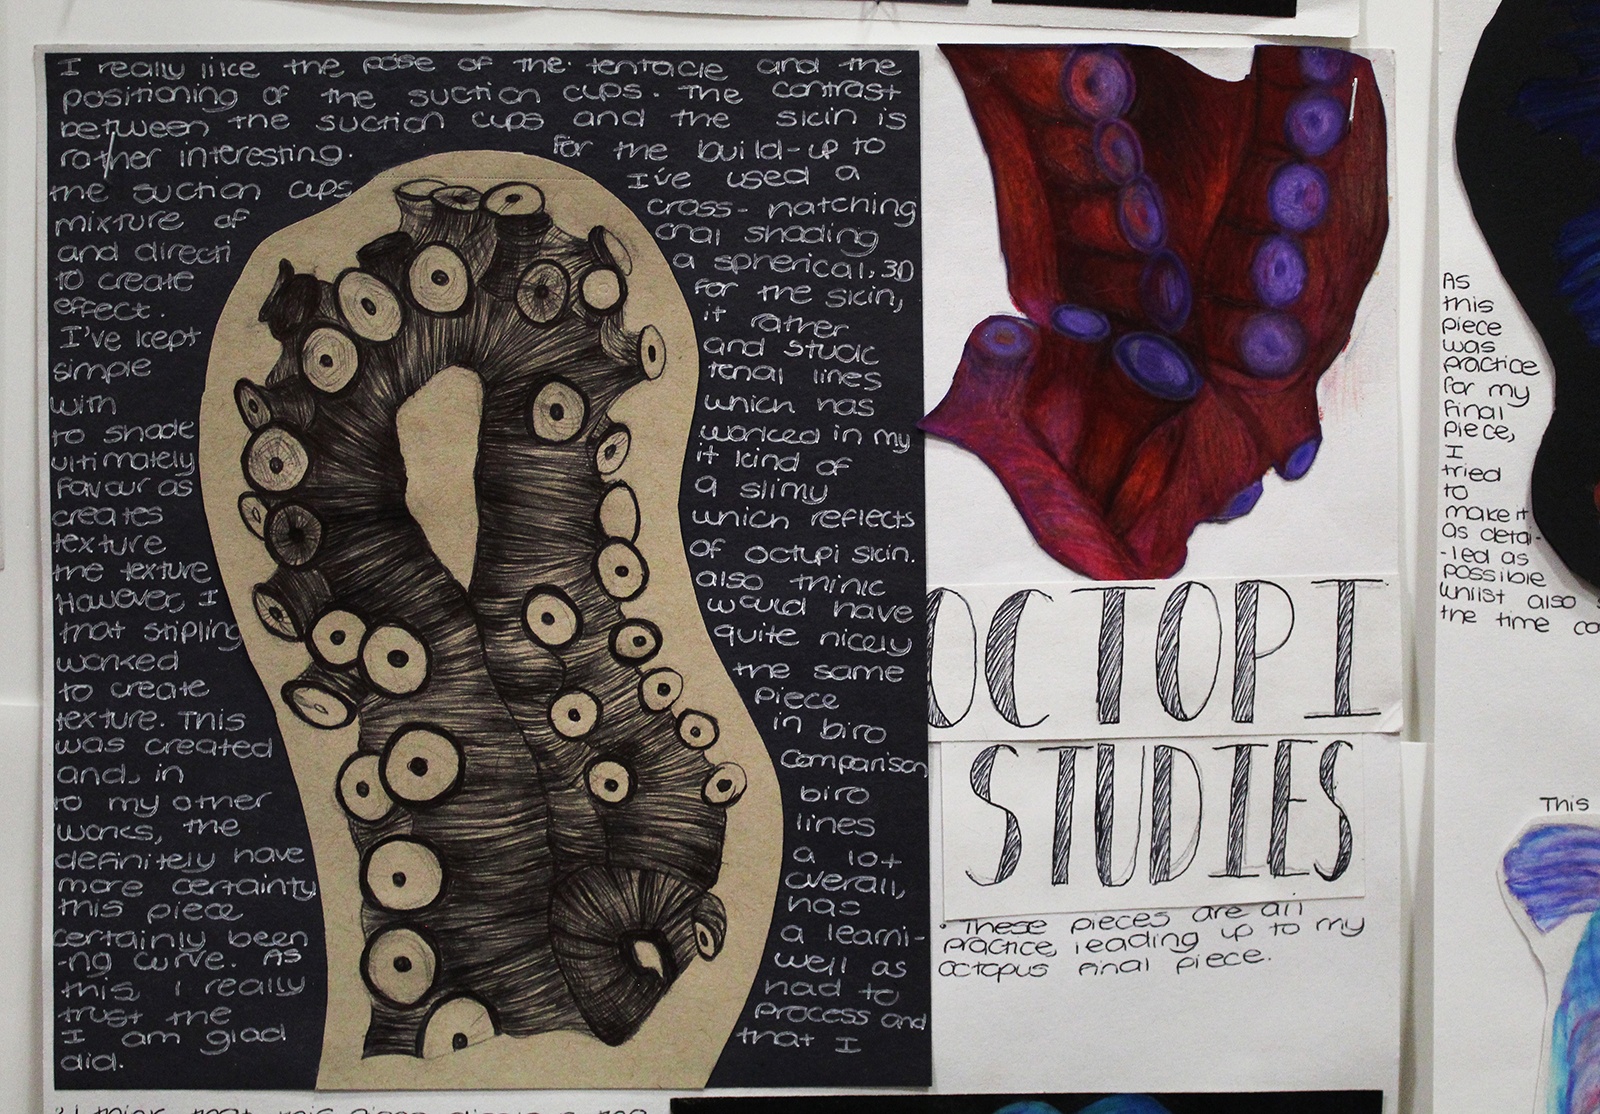 I really like the pose of the tentacle and the
positioning of the suction cups. The contrast
between the suction cups and the skin is
rather interesting. For the build-up to
the suction cups I've used a
mixture of cross-hatching
and directi onal shading
to create a spherical, 3D
effect. For the skin,
I've kept it rather
simple and stuck
with tonal lines
to shade which has
ultimately worked in my
favour as it kind of
creates a slimy
texture which reflects
the texture of octupi skin.
However, I also think
that stipling would have
worked quite nicely
to create the same
texture. This piece
was created in biro
and, in comparison
to my other biro
works, the lines
definitely have a lot
more certainty overall,
this piece has
certainly been a learni-
-ng curve. As well as
this, I really had to
trust the process and
I am glad that I
did.
OCTOPI
STUDIES
• These pieces are all my
practice, leading up to my
octopus final piece.
As
this
piece
was
practice
for my
final
piece,
I
tried
to
make it
as detai-
-led as
possible
whilst also
the time
This
I think that this piece